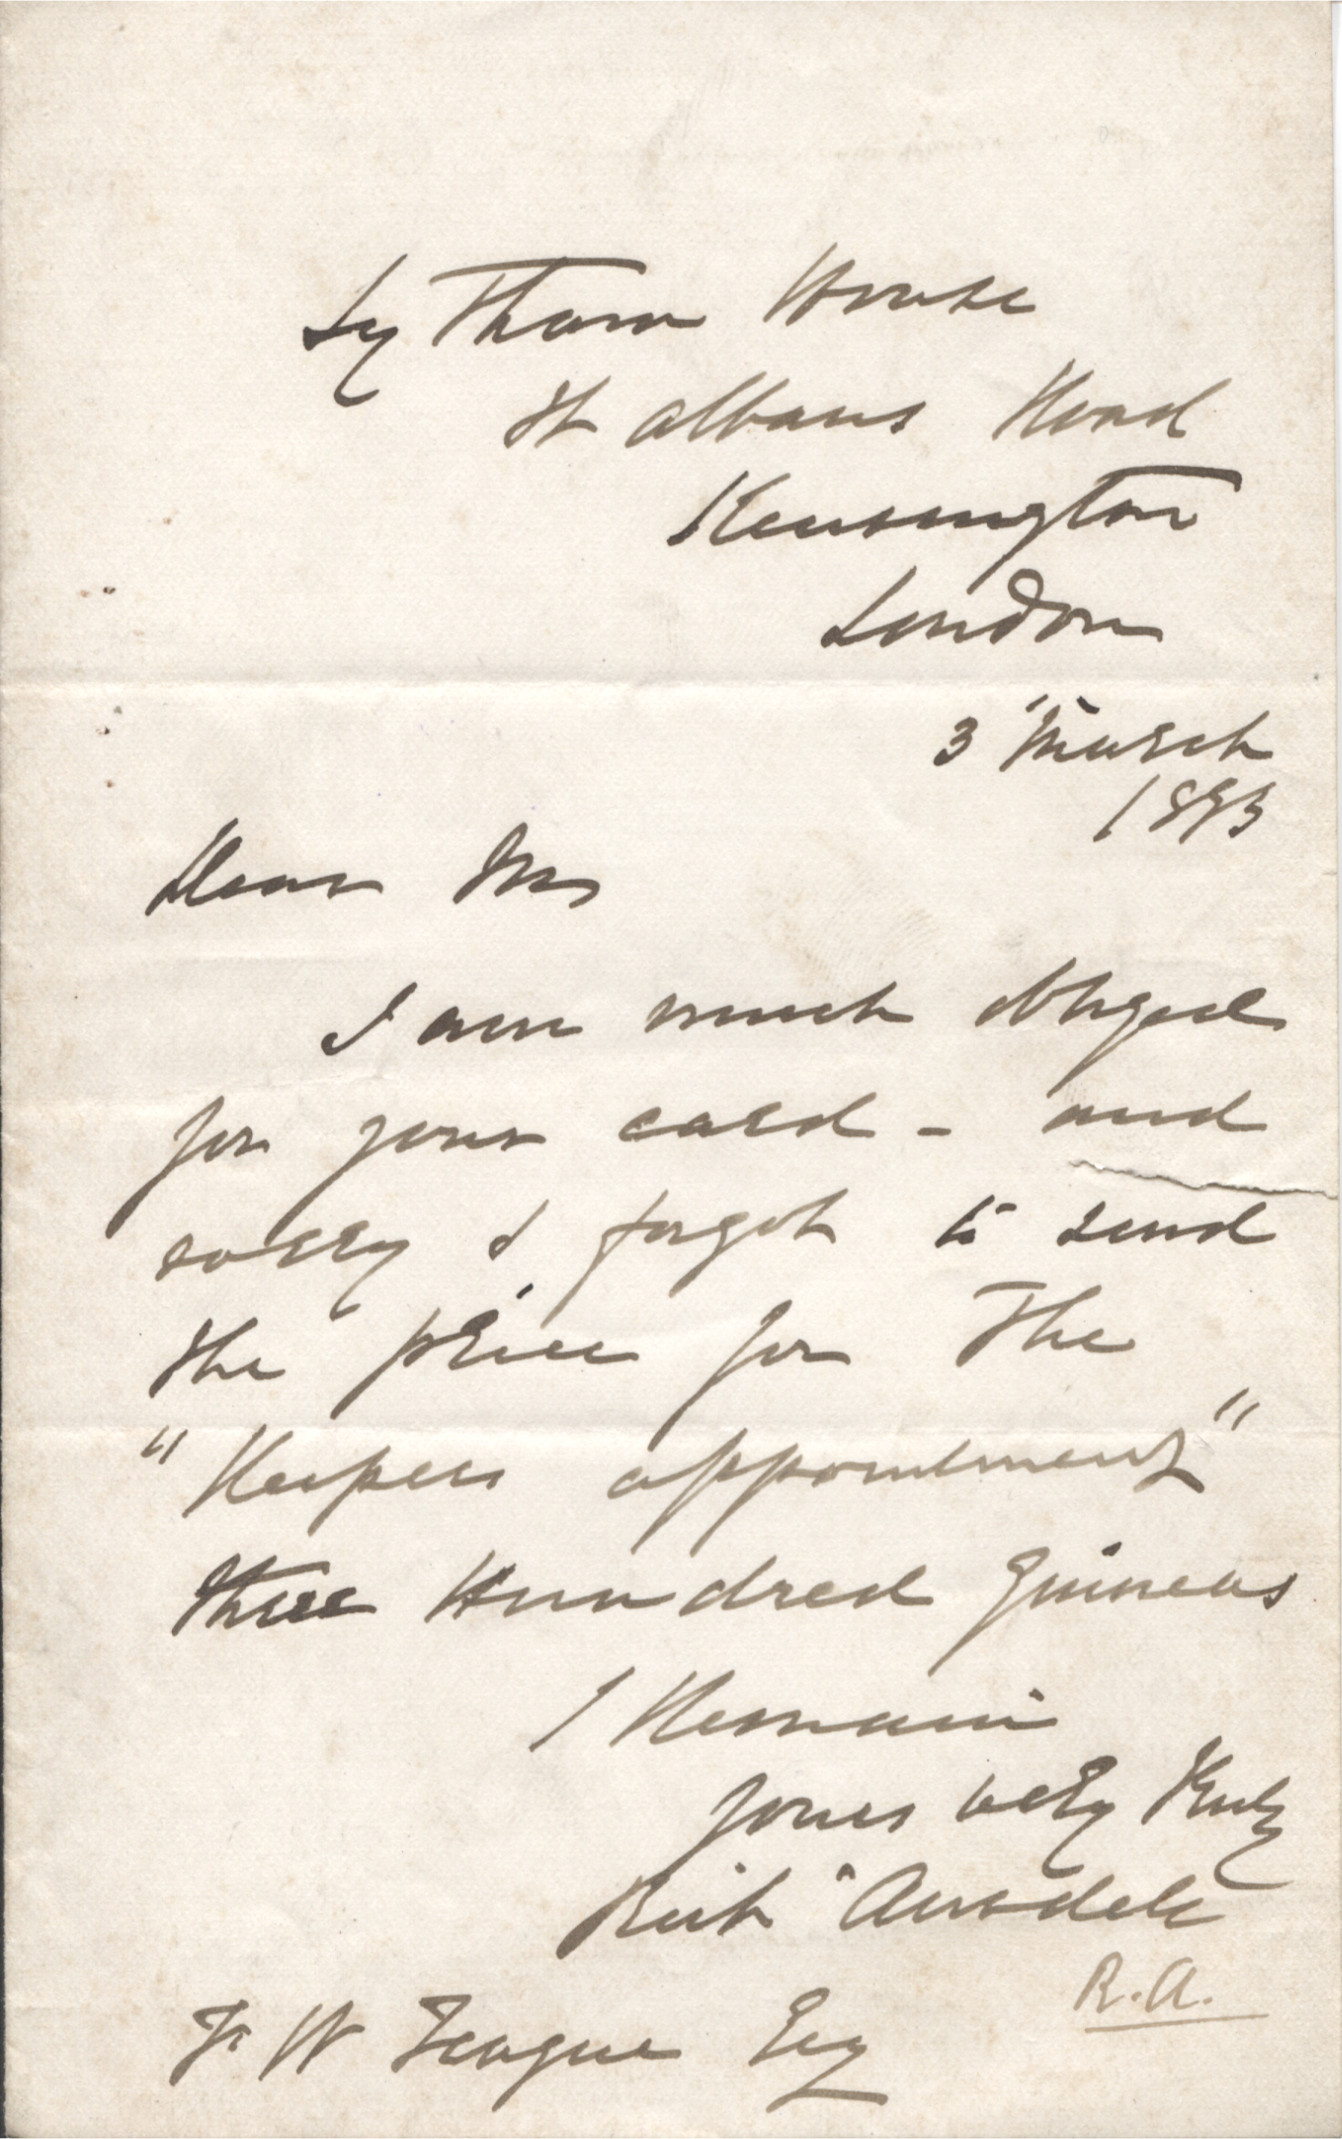 Lytham House
St Albans Road
Kensington
London
3 March
1883
Dear Sir
I am much obliged
for your card - and
sorry I forgot to send
the price for The
"Keepers appointment"
three Hundred guineas
I Remain
Yours very Truly
Rich Ansdell
R.A.
F W Teague Esq